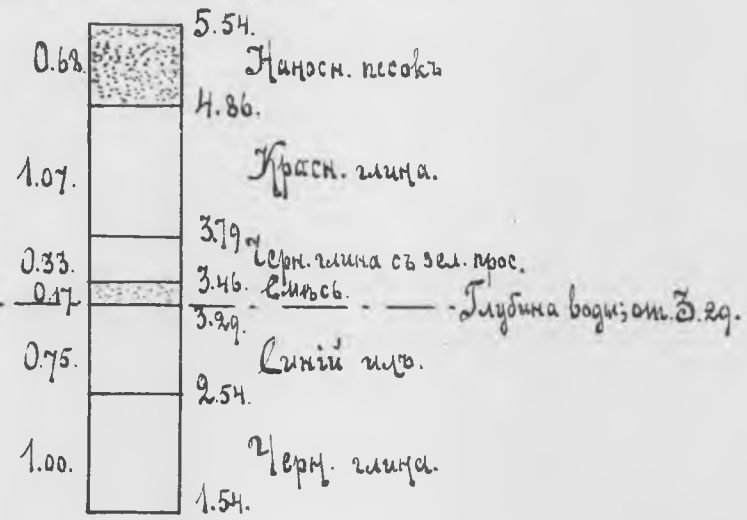 5.54.
0.68. Наносн. песокъ
4.86.
1.07. Красн. глина.
3.79
0.33. Черн. глина съ зел. прос.
3.46. Смѣсь.
0.17
3.29. Глубина воды; от. 3.29.
0.75. Синій илъ.
2.54.
1.00. Черн. глина.
1.54.